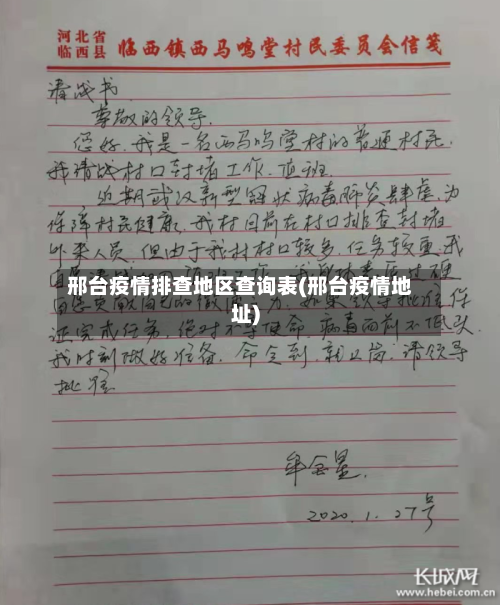 河北省
临西县 临西镇西马鸣堂村民委员会信笺
请战书
尊敬的领导,
您好,我是一名西马鸣堂村的普通村民,
我请战村口封堵工作,值班.
近期武汉新型冠状病毒肺炎肆虐,为
保障村民健康,我村目前在村口排查封堵
外来人员,但由于我村村口较多,任务较重,我
邢台疫情排查地区查询表(邢台疫情地
址)
证完成任务,绝对不辱使命,病毒面前不低头,
我时刻做好准备,命令到,就上岗,请领导
批准.
牟金星.
2020.1.27号
长城网
www.hebei.com.cn